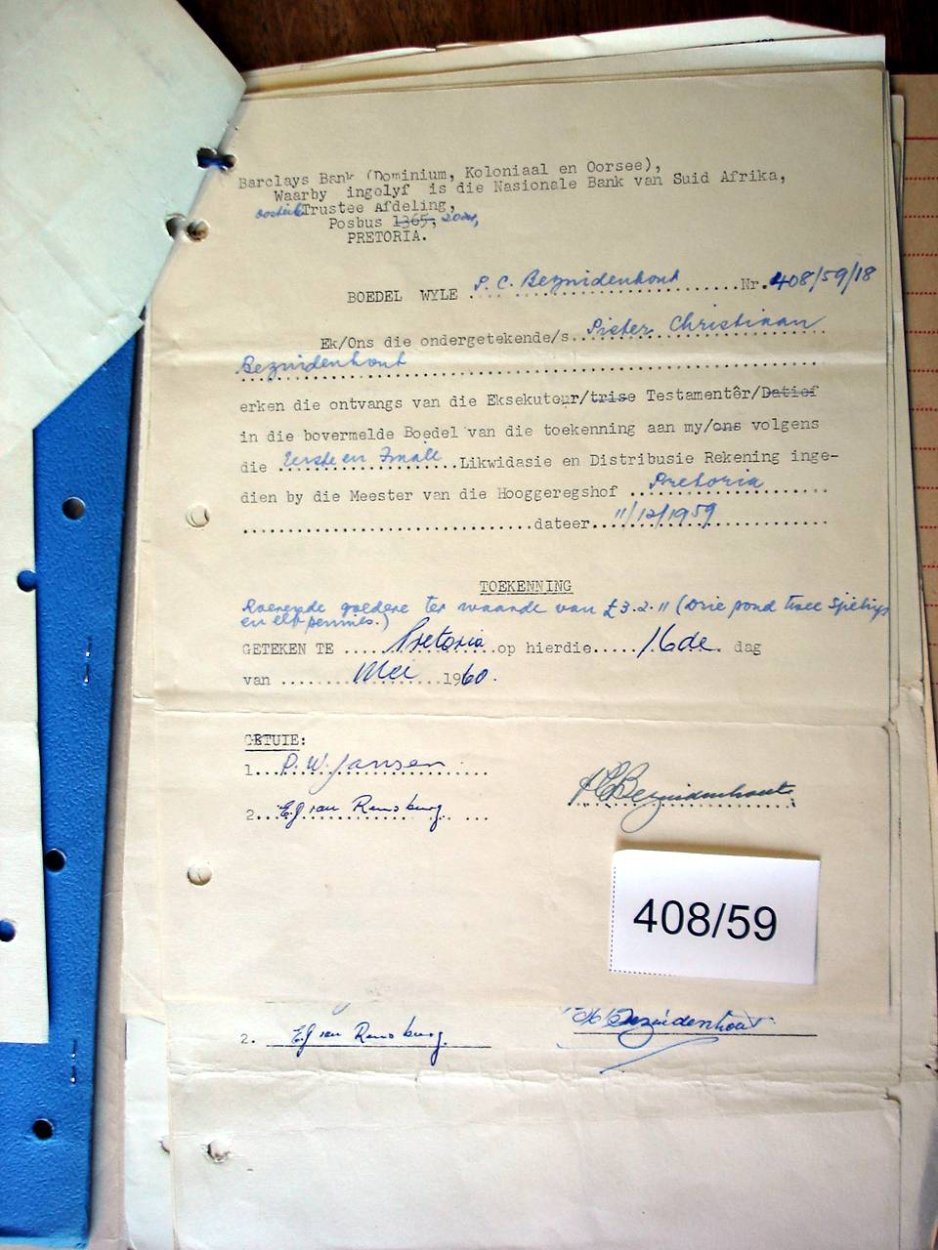 Barclays Bank (Dominium, Koloniaal en Oorsee),
Waarby ingolyf is die Nasionale Bank van Suid Afrika,
Trustee Afdeling,
Posbus 1365,
PRETORIA.
BOEDEL WYLE P. C. Bezuidenhout Nr. 408/59/18
Ek/Ons die ondergetekende/s Pieter Christiaan
Bezuidenhout
erken die ontvangs van die Eksekuteur/trise Testamentêr/Datief
in die bovermelde Boedel van die toekenning aan my/ons volgens
die Eerste en Finale Likwidasie en Distribusie Rekening inge-
dien by die Meester van die Hooggeregshof Pretoria
dateer 11/12/1959
TOEKENNING
Roerende goedere ter waarde van £3.2.11 (Drie pond twee sjielings
en elf pennies.)
GETEKEN TE Pretoria op hierdie 16de dag
van Mei 1960.
GETUIE:
1. P. W. Jansen
2. E J van Rensburg
P C Bezuidenhout
408/59
2. E J van Rensburg
Bezuidenhout